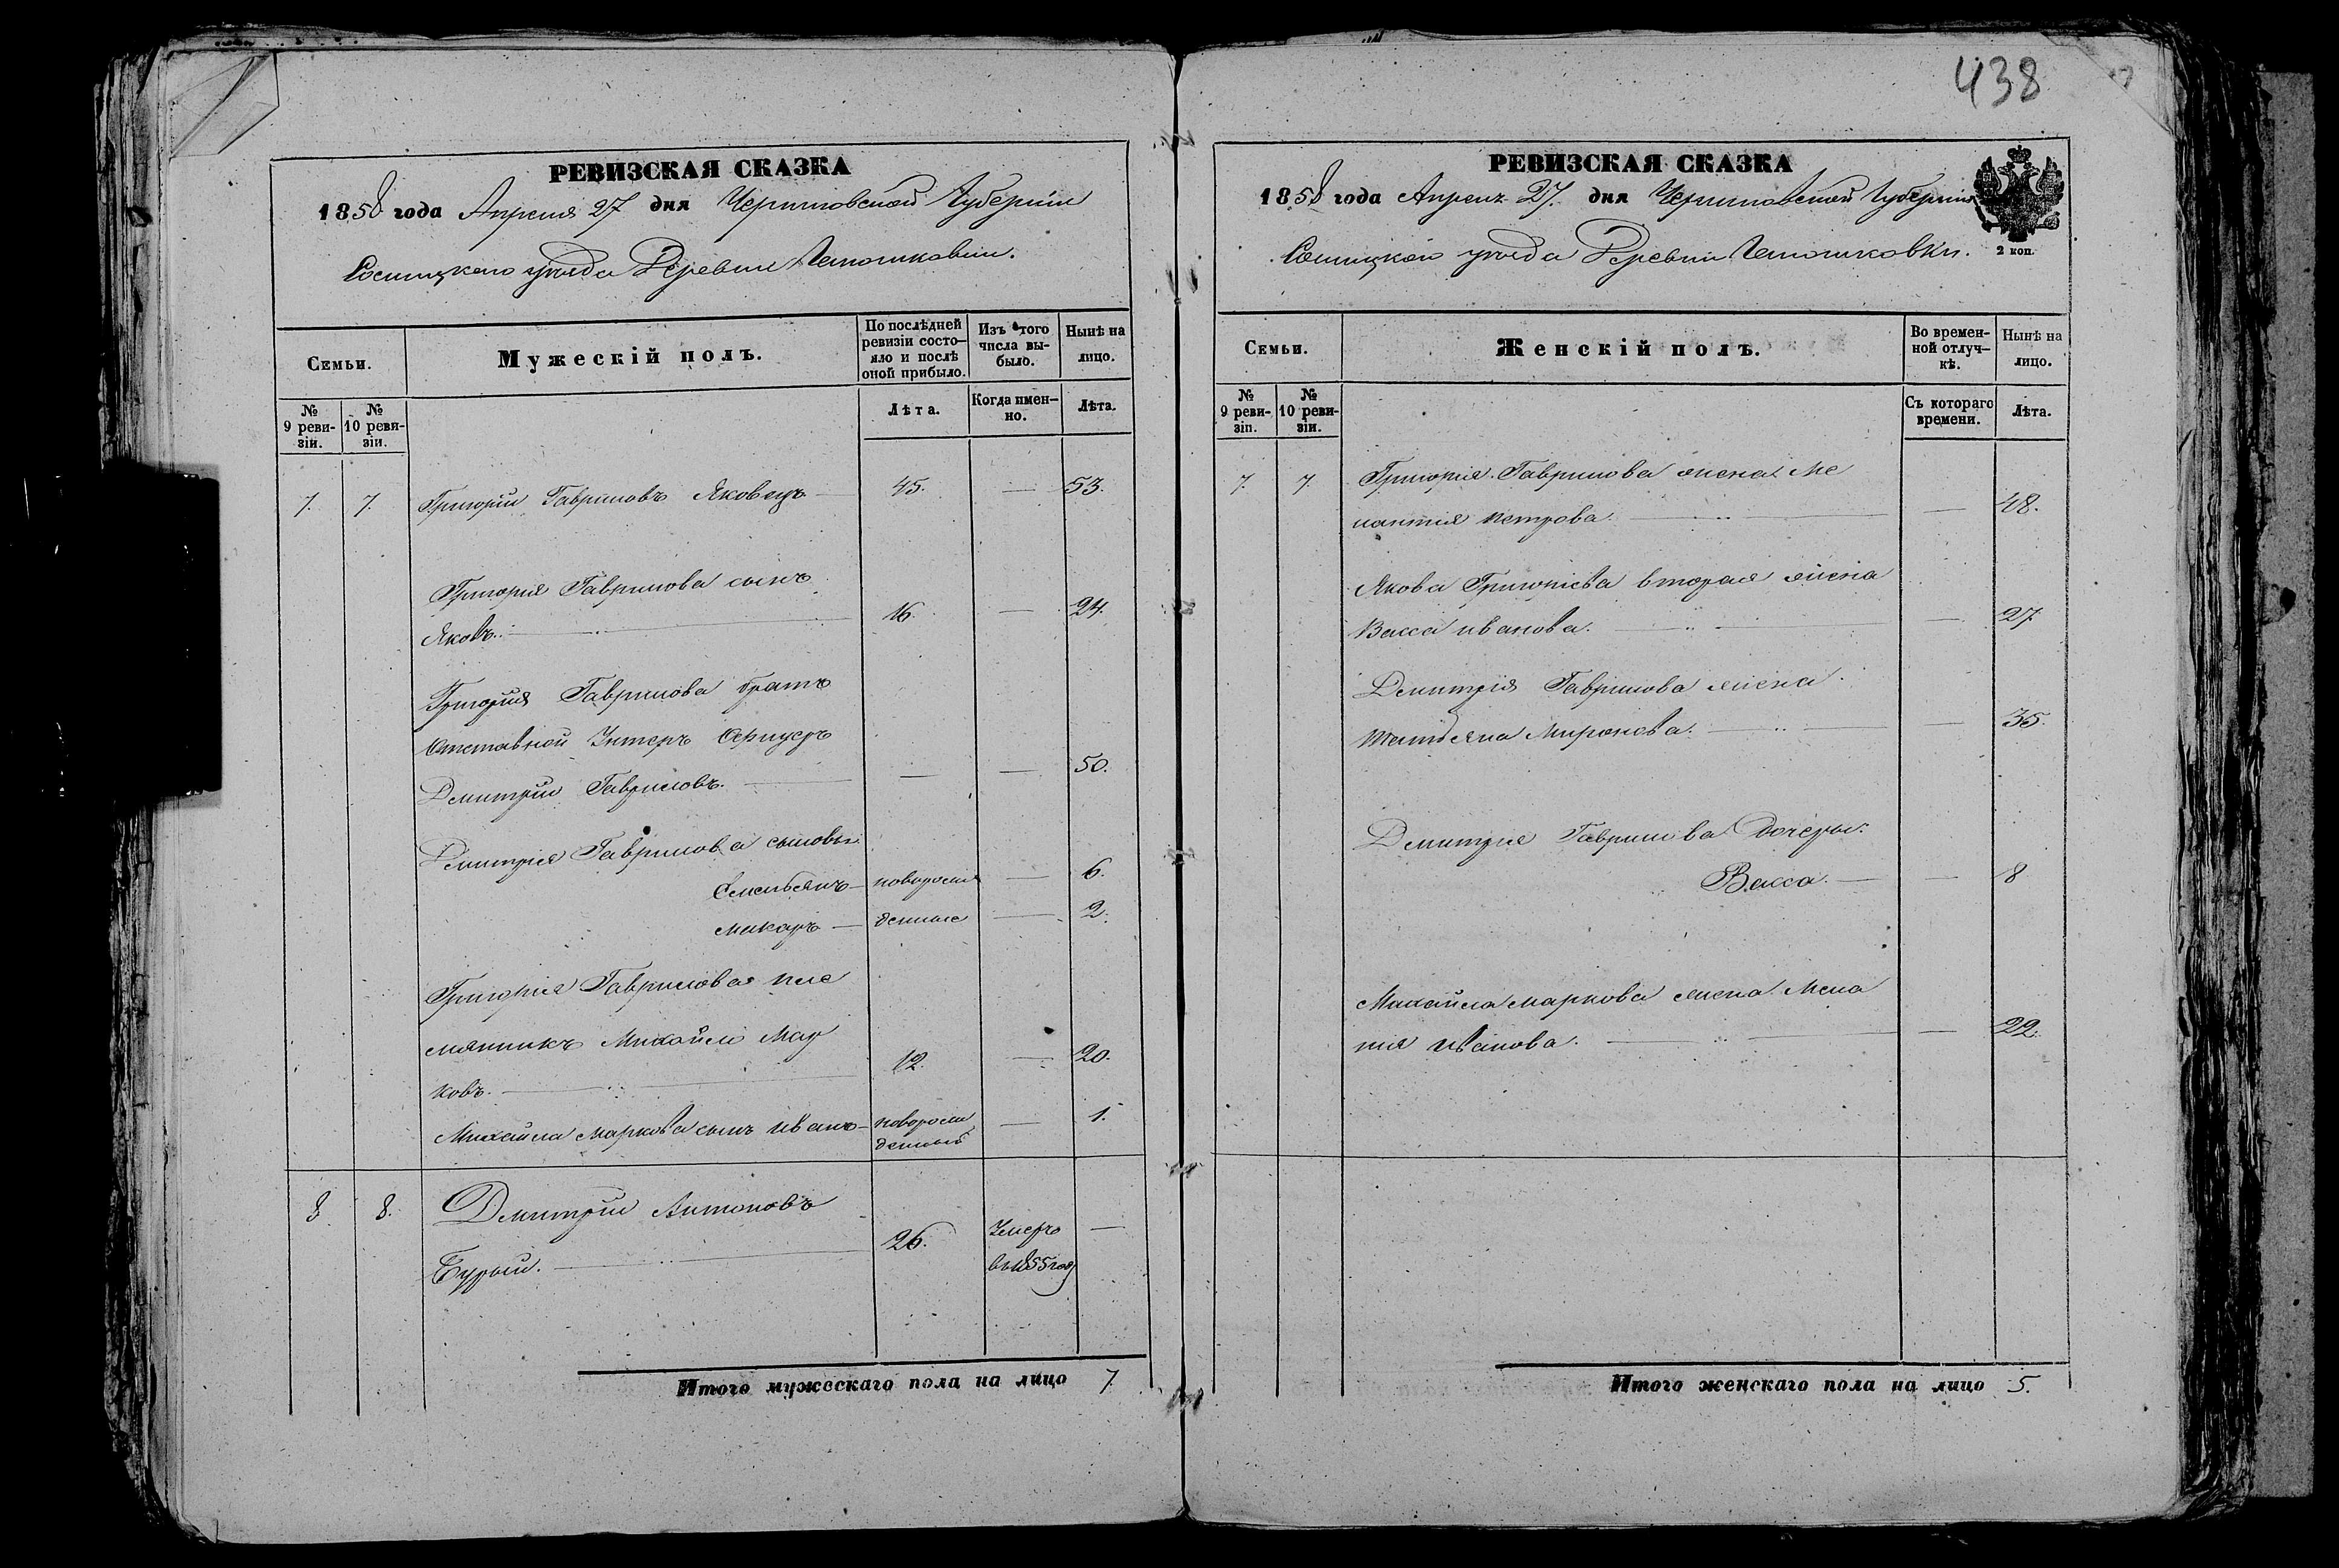 438
РЕВИЗСКАЯ СКАЗКА
1858 года Апреля 27 дня Черниговской Губернии
Сосницкого уезда Деревни
Семьи.
Мужескій полъ.
По послѣдней ревизіи состо-
яло и послѣ
оной прибыло.
Изъ этого
числа вы-
было.
Нынѣ на
лицо.
№
9 реви-
зіи.
№
10 реви-
зіи.
Лѣта.
Когда имен-
но.
Лѣта.
7. 7. Григорий Гавриловъ Яковецъ 45. — 53.
Григория Гаврилова сынъ
Яковъ. 16. — 24.
Григория Гаврилова братъ
Отставной Унтеръ Офицеръ
Дмитрий Гавриловъ. — — 50.
Дмитрия Гаврилова сыновья
Емельянъ — новорож — 6.
Макаръ — денные — 2.
Григория Гаврилова пле
мянникъ Михайло Мар
ковъ. 12. — 20.
Михайла Маркова сынъ Иванъ — новорож
денный — 1.
8 8. Дмитрий Антоновъ
Бурый. 26. Умеръ
въ 1855 году —
Итого мужескаго пола на лицо 7
РЕВИЗСКАЯ СКАЗКА
1858 года Апреля 27. дня Черниговской Губернии
Сосницкого уезда Деревни
2 коп.
Семьи.
Женскій полъ.
Во времен-
ной отлуч-
кѣ.
Нынѣ на
лицо.
№
9 реви-
зіи.
№
10 реви-
зіи.
Съ котораго
времени.
Лѣта.
7. 7. Григория Гаврилова жена Ме
лантия Петрова. — 48.
Якова Григориева вторая жена
Васса Иванова. — 27.
Дмитрия Гаврилова жена
Татьяна Миронова. — 35.
Дмитрия Гаврилова дочерь.
Васса. — 8
Михайла Маркова жена Мела
ния Иванова. — 22.
Итого женскаго пола на лицо 5.